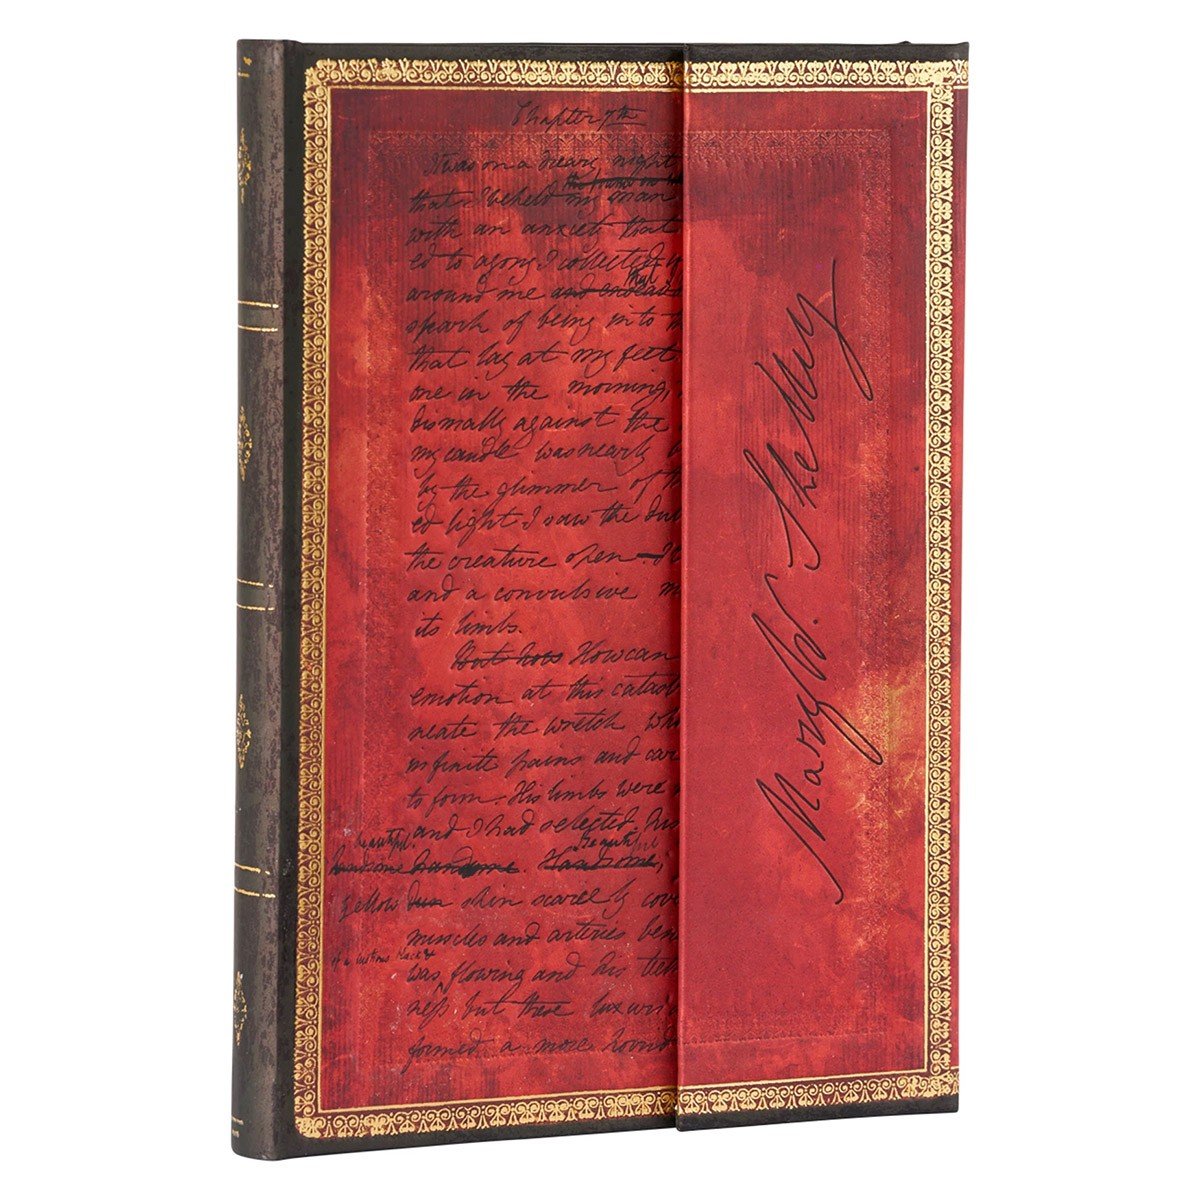 Chapter 7th
It was on a dreary night
that I beheld my man
with an anxiety that
ed to agony I collected
around me and endeav that
spark of being into
that lay at my feet
one in the morning,
dismally against the
my candle was nearly
by the glimmer of
ed light I saw the dul
the creature open
and a convulsive m
its limbs.
But how How can
emotion at this catast
neate the wretch who
infinite pains and car
to form. His limbs were
and I had selected his
beautiful. beautiful
handsome handsome. Handsome,
yellow dun skin scarcely cove
muscles and arteries ben
of a lustrous black &
was flowing and his teeth
ness but these luxuri
formed a more horrid
Mary W. Shelley